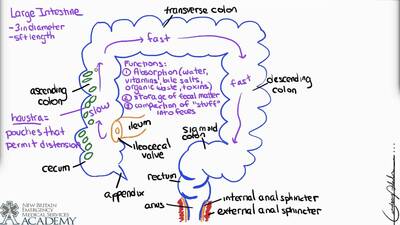 Large Intestine
-3in diameter
-5ft length
transverse colon
fast
Functions:
① Absorption (water,
vitamins, bile salts,
organic waste, toxins)
② storage of fecal matter
③ compaction of "stuff"
into feces
ascending
colon
slow
haustra=
pouches that
permit distension
fast
descending
colon
ileum
ileocecal valve
sigmoid
colon
cecum
appendix
rectum
anus
internal anal sphincter
external anal sphincter
NEW BRITAIN
EMERGENCY
MEDICAL SERVICES
ACADEMY